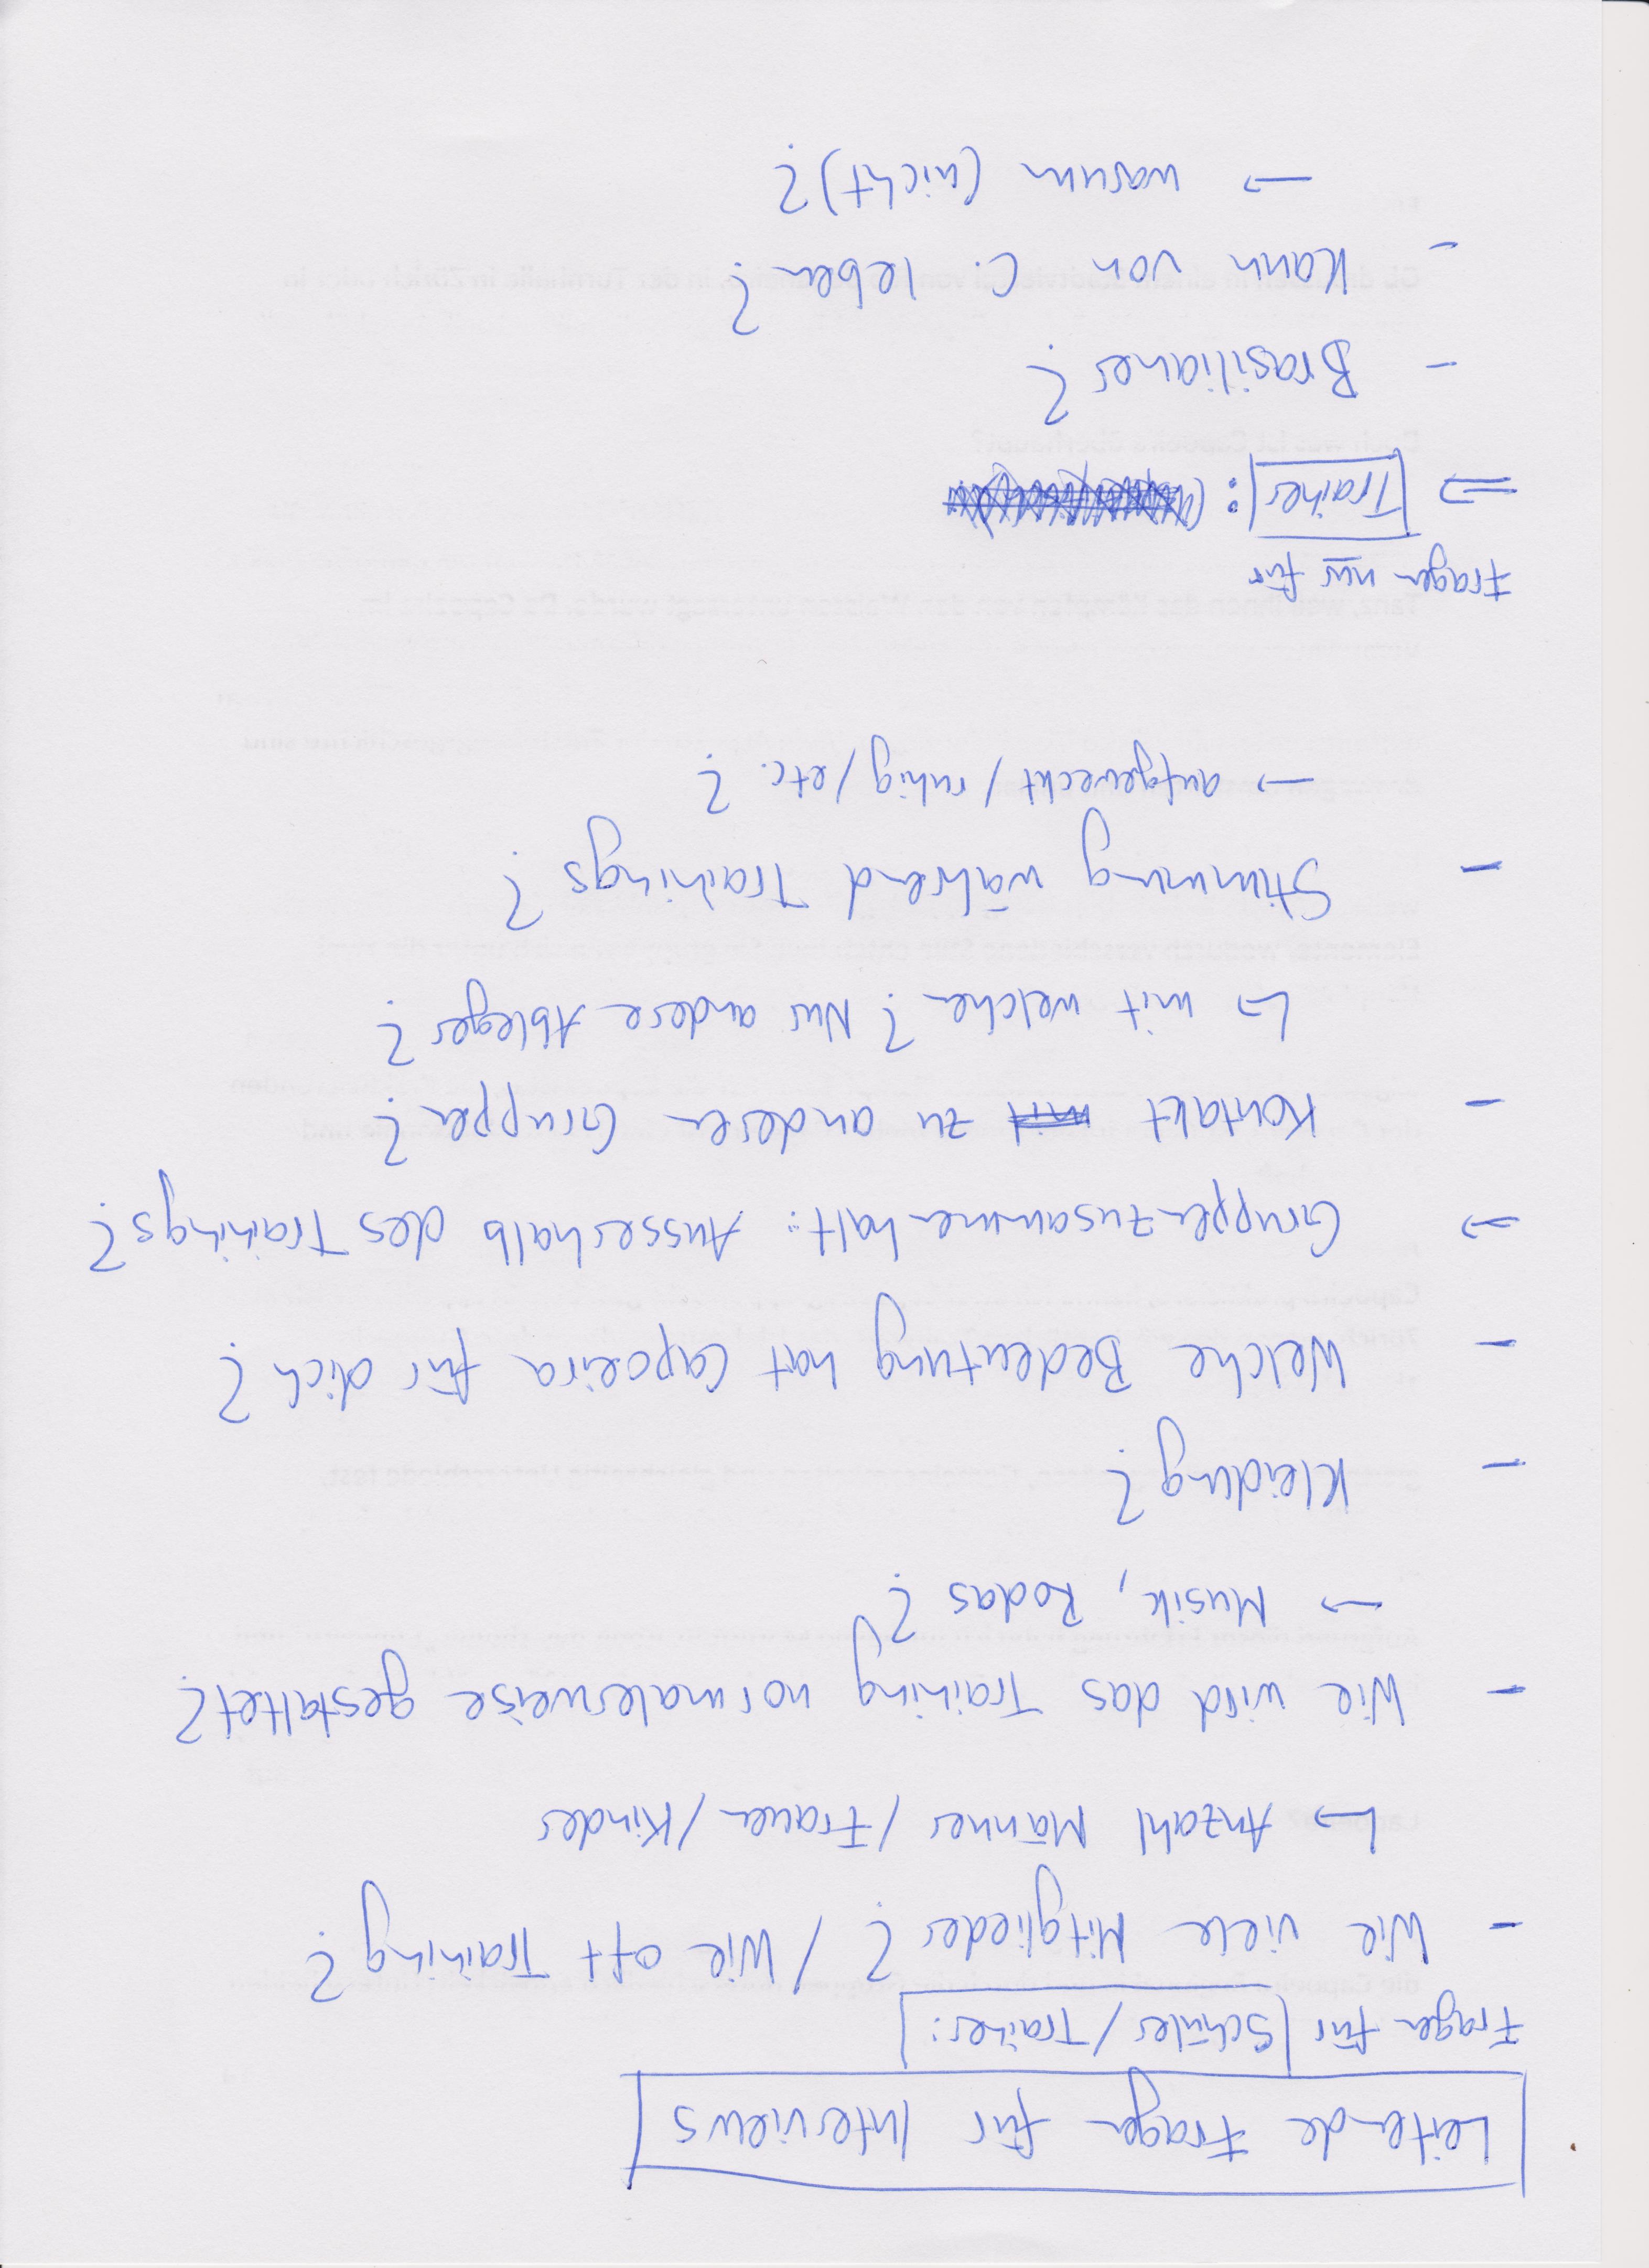 Leitende Fragen für Interviews
Fragen für Schüler/Trainer:
- Wie viele Mitglieder? / Wie oft Training?
↳ Anzahl Männer / Frauen / Kinder
- Wie wird das Training normalerweise gestaltet?
→ Musik, Rodas?
- Kleidung?
- Welche Bedeutung hat Capoeira für dich?
→ Gruppenzusammenhalt: Ausserhalb des Trainings?
- Kontakt mit zu anderen Gruppen?
↳ mit welchen? Nur andere Ableger?
- Stimmung während Trainings?
→ aufgeweckt / ruhig / etc. ?
Fragen nur für
⇒ Trainer:
- Brasilianer?
- Kann von C. leben?
→ warum (nicht)?